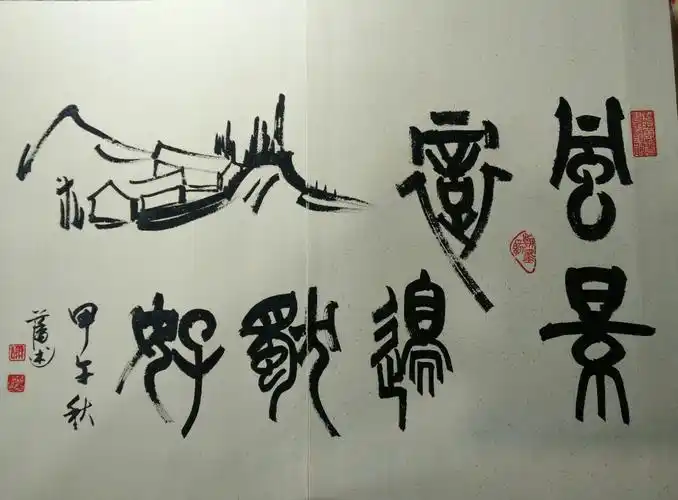 風景
這邊
獨
好
甲午秋